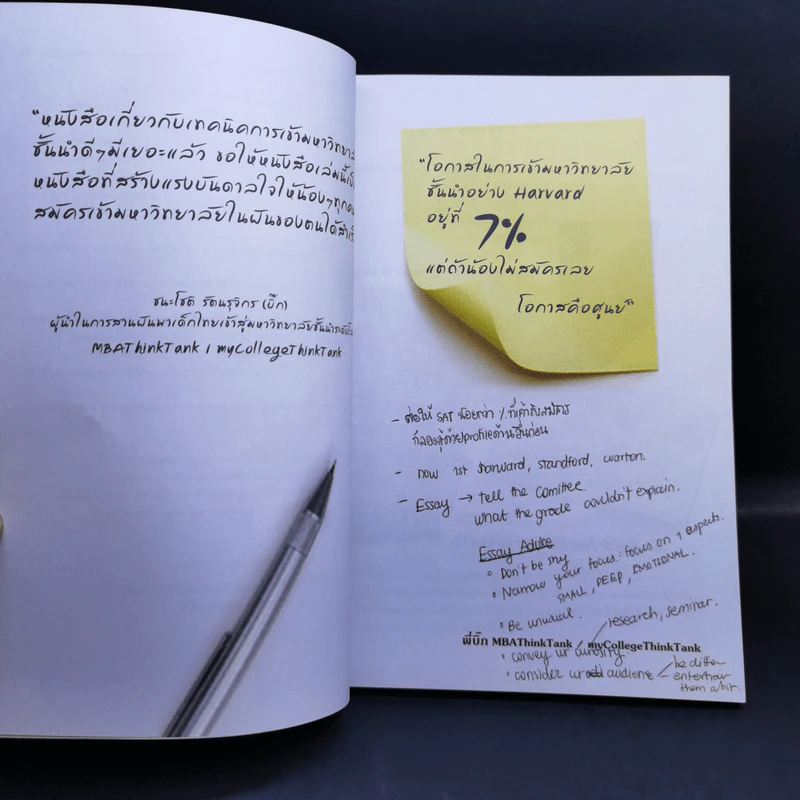 “หนังสือเกี่ยวกับเทคนิคการเข้ามหาวิทยาลั
ชั้นนำดีๆมีเยอะแล้ว ขอให้หนังสือเล่มนี้เป็
หนังสือที่สร้างแรงบันดาลใจให้น้องๆทุกค
สมัครเข้ามหาวิทยาลัยในฝันของตนได้สำเร็
ชนะโชต รัตนรุจิกร (บิ๊ก)
ผู้นำในการสานฝันพาเด็กไทยเข้าสู่มหาวิทยาลัยชั้นนำระดับโล
MBAThinkTank / myCollegeThinkTank
“โอกาสในการเข้ามหาวิทยาลัย
ชั้นนำอย่าง Harvard
อยู่ที่ 7%
แต่ถ้าน้องไม่สมัครเลย
โอกาสคือศูนย์”
- ต่อให้ SAT น้อยกว่า % ที่เค้ารับสมัคร
ก็ลองสู้ด้วยprofileด้านอื่นก่อน
- now 1st harward, standford, warton.
- Essay → tell the Comittee.
what the grade couldn't explain.
Essay Advice
• Don't be shy
• Narrow your focus: focus on 1 aspects.
SMALL, DEEP, EMOTIONAL.
• Be unusual.
research, seminar.
พี่บิ๊ก MBAThinkTank / myCollegeThinkTank
• convey ur curiosity
• consider ur audience
be differ
entertain
them a bit.